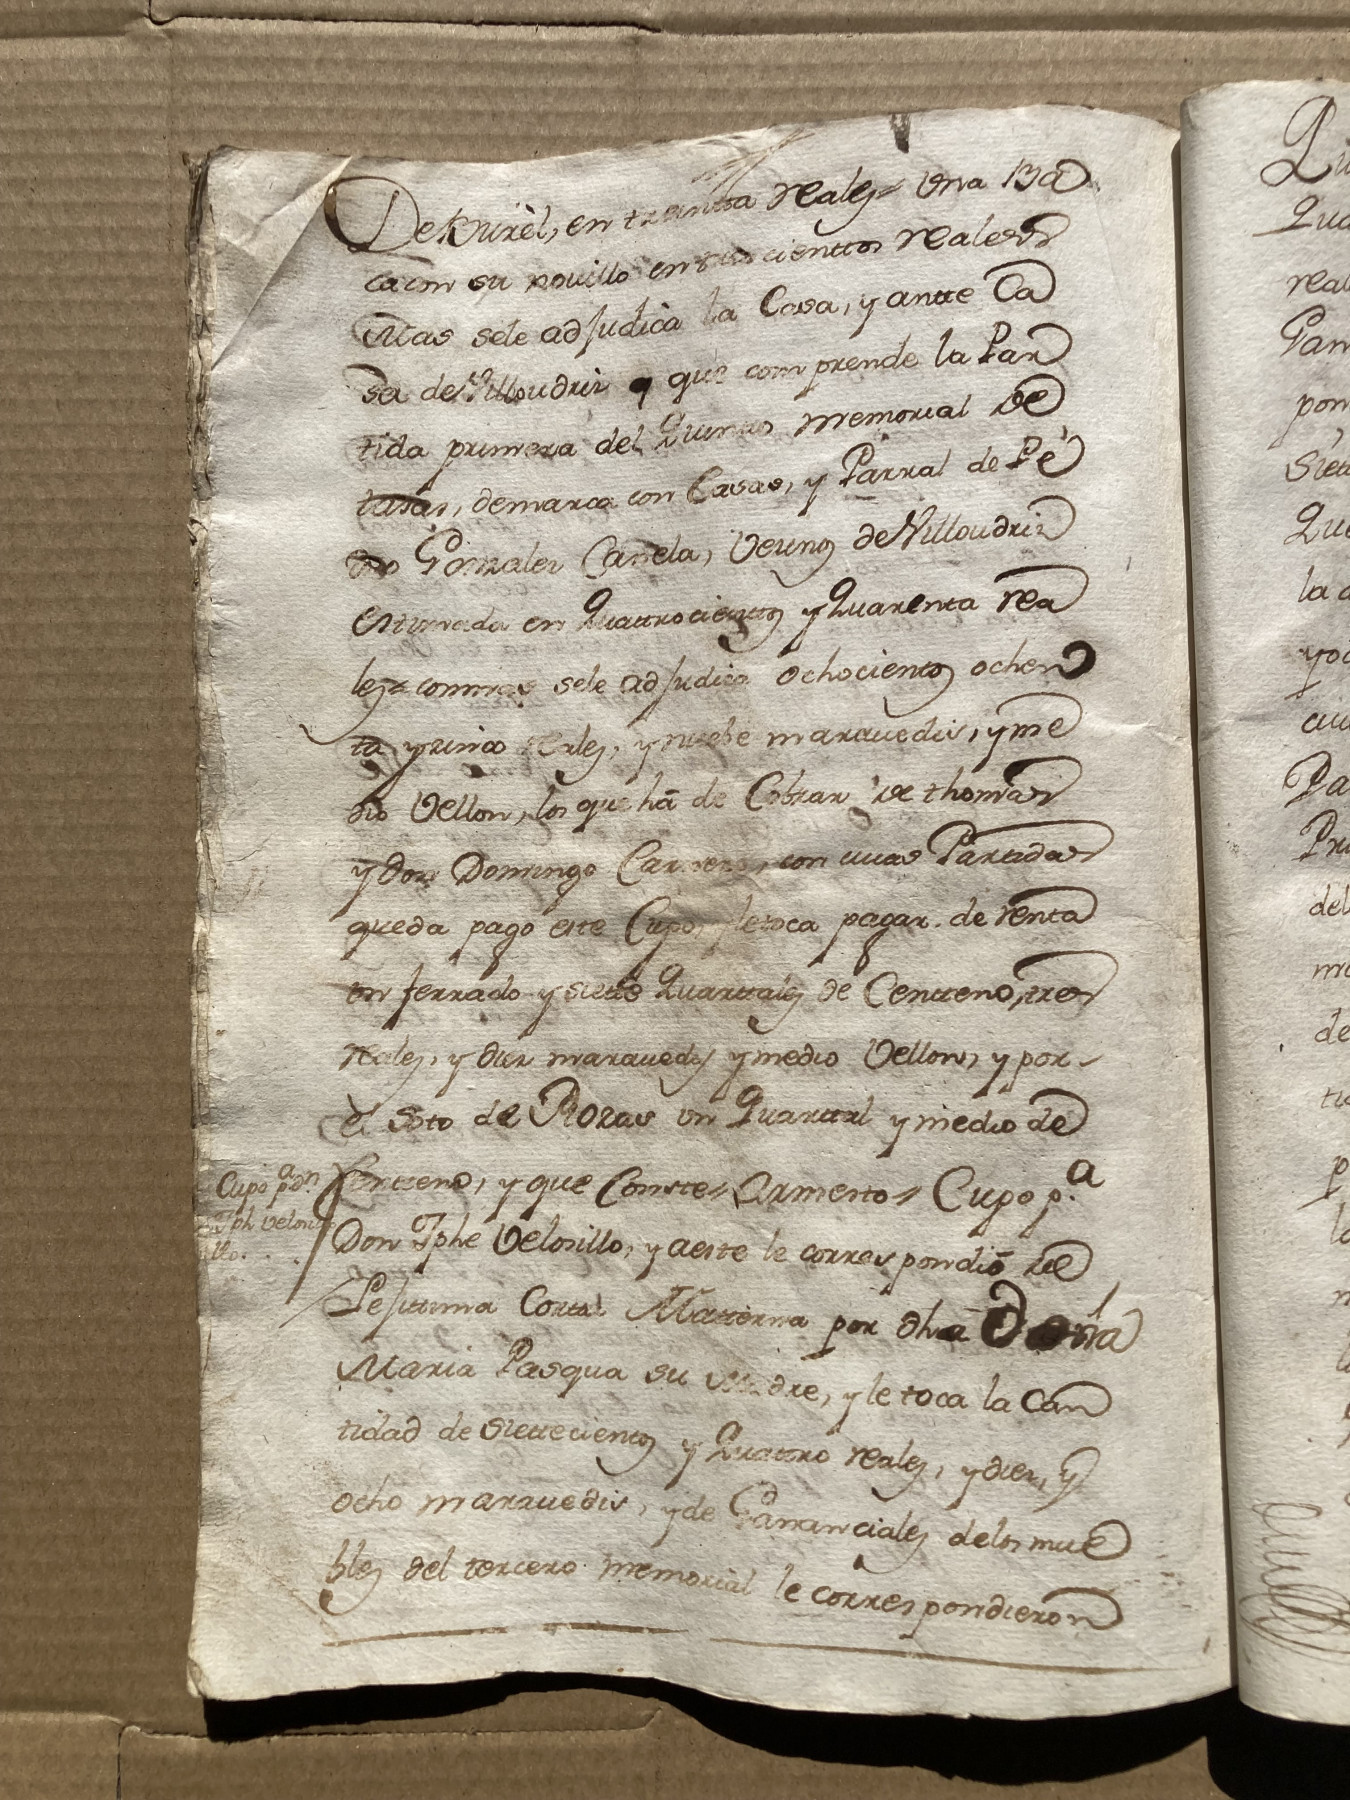 De Burèl, en treintta reales = Una Ba
ca con su nouillo en doscienttos reales
Mas sele adJudica la Casa, y antte Ca
sa de Villoudriz q que comprende la Par
tida primera del Quinto memorial de
tasas, demarca con Casas, y Parral de Pe
dro Gonzalez Canela, Vecino de Villoudriz
estimada en Quattrocienttos y Quarenta rea
les = con mas sele adJudica ochocientos ochen
ta y cinco reales, y nuebe marauedis, y me
dio Vellon, los que hà de Cobrar de thomas
y don Domingo Carnero, con cuias Partidas
queda pago este Cupo, y letoca pagar de renta
un ferrado y siette Quarttales de Centteno, tres
reales, y diez marauedis y medio Vellon, y por
el Soto de Rozas un Quarttal y medio de
Centteno, y que Conste = Armesto = Cupo p.ª
Don Jphe Velosillo, y aeste le correspondiò de
LeJittima Cortta Matterna por dha Doña
Maria Pasqua su Madre, y le toca la Can
tidad de Siettecientos y Quattro reales, y diez, y
ocho marauedis, y de Gananciales delos mue
bles del tercero memorial le correspondieron
Cupo p.ª dn
Jph Velosi
llo.